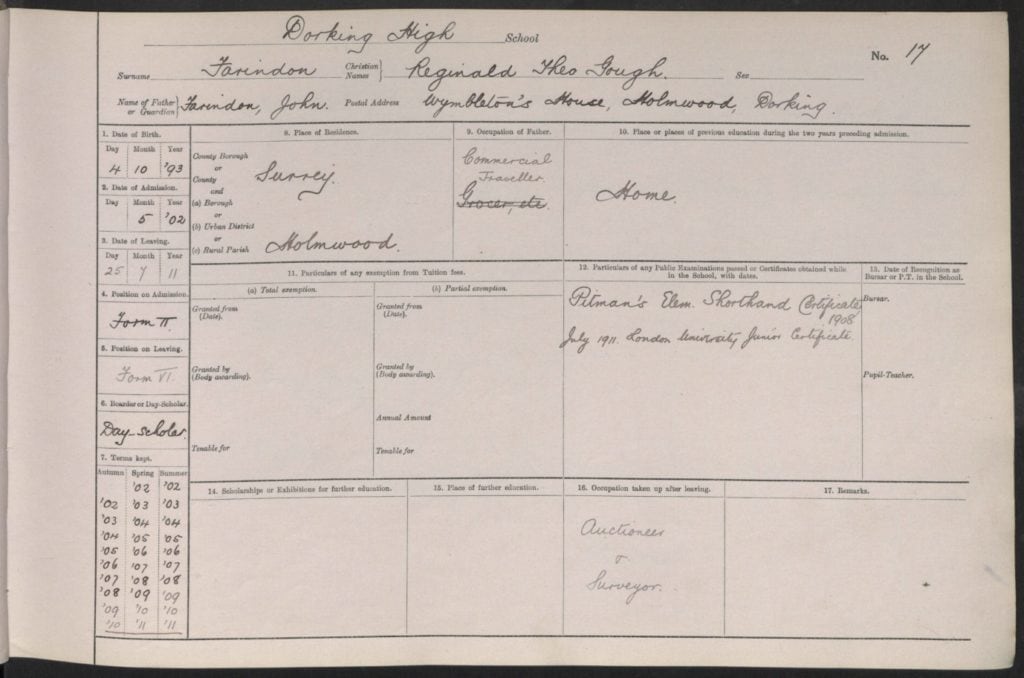 Dorking High School
No. 17
Surname Farindon Christian Names Reginald Theo Gough. Sex
Name of Father or Guardian Farindon, John. Postal Address Wymbleton's House, Holmwood, Dorking.
1. Date of Birth.
Day Month Year
4 10 '93
2. Date of Admission.
Day Month Year
5 '02
3. Date of Leaving.
Day Month Year
25 7 11
4. Position on Admission.
Form II.
5. Position on Leaving.
Form VI.
6. Boarder or Day-Scholar.
Day-scholar.
7. Terms kept.
Autumn Spring Summer
'02 '02
'02 '03 '03
'03 '04 '04
'04 '05 '05
'05 '06 '06
'06 '07 '07
'07 '08 '08
'08 '09 '09
'09 '10 '10
'10 '11 '11
8. Place of Residence.
County Borough
or
County Surrey.
and
(a) Borough
or
(b) Urban District
or
(c) Rural Parish Holmwood.
9. Occupation of Father.
Commercial
Traveller.
Grocer, etc
10. Place or places of previous education during the two years preceding admission.
Home.
11. Particulars of any exemption from Tuition fees.
(a) Total exemption.
Granted from
(Date).
Granted by
(Body awarding).
Tenable for
(b) Partial exemption.
Granted from
(Date).
Granted by
(Body awarding).
Annual Amount
Tenable for
12. Particulars of any Public Examinations passed or Certificates obtained while
in the School, with dates.
Pitman's Elem. Shorthand Certificate
1908
July 1911. London University Junior Certificate.
13. Date of Recognition as
Bursar or P.T. in the School.
Bursar.
Pupil-Teacher.
14. Scholarships or Exhibitions for further education.
15. Place of further education.
16. Occupation taken up after leaving.
Auctioneer
&
Surveyor.
17. Remarks.